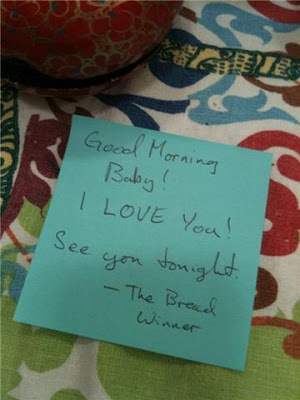 Good Morning
Baby!
I LOVE You!
See you tonight.
— The Bread
Winner